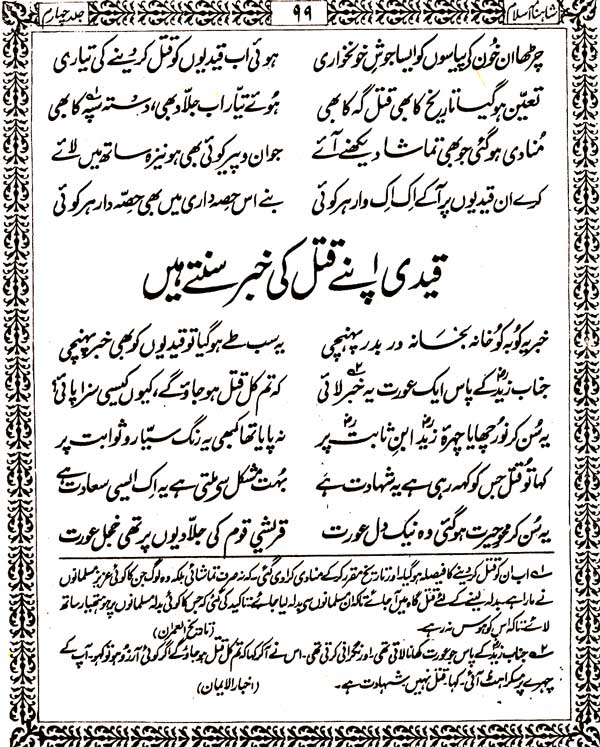 شاہنامۂ اسلام
۹۹
جلد چہارم
چڑھا ان خون کے پیاسوں کو ایسا جوشِ خونخواری ہوئی اب قیدیوں کو قتل کر دینے کی تیاری
تعیّن ہو گیا تاریخ کا بھی قتل گہ کا بھی ہوئے تیّار اب جلاّد بھی، دستہ سپہ کا بھی
مُنادی ہو گئی جو بھی تماشا دیکھنے آئے جوان و پیر کوئی بھی ہو نیزہ ساتھ میں لائے
کرے ان قیدیوں پر آ کے اِک اِک وار ہر کوئی بنے اس حِصہ داری میں بھی حِصّہ دار ہر کوئی
قیدی اپنے قتل کی خبر سنتے ہیں
خبر یہ کُو بہ کُو خانہ بخانہ در بدر پہنچی یہ سب طے ہو گیا تو قیدیوں کو بھی خبر پہنچی
جناب زیدؓ کے پاس ایک عورت یہ خبر لائی ۲ کہ تم کل قتل ہو جاؤ گے، کہوں کیسی سزا پائی؟
یہ سُن کر نور چھایا چہرۂ زیدؓ ابنِ ثابتؓ پر نہ پایا تھا کبھی یہ رنگ سیّار و ثوابت پر
کہا تُو قتل جس کو کہہ رہی ہے یہ شہادت ہے بہت مُشکل سے ملتی ہے یہ اِک ایسی سعادت ہے
یہ سُن کر محوِ حیرت ہو گئی وہ نیک دل عورت قریشی قوم کی جلاّدیوں پر تھی خجل عورت
۱؎ اب ان کو قتل کر دینے کا فیصلہ ہو گیا اور تاریخ مقرر کر کے منادی کرا دی گئی کہ نہ صرف تماشائی بلکہ وہ لوگ جن کا کوئی عزیز مسلمانوں
نے مارا ہے بدلہ لینے کے لئے قتل گاہ میں آ جائے تاکہ ان مسلمانوں سے بدلہ لیا جائے تاکید کی گئی کہ جس کا کوئی بدلہ مسلمانوں پر ہو ہتھیار ساتھ
لائے تاکہ اس کو ہوس نہ رہے۔ (تاریخ العمران)
۲؎ جناب زیدؓ کے پاس جو عورت کھانا لاتی تھی۔ اور نگرانی کرتی تھی۔ اس نے آ کر کہا کہ تم کل قتل ہو جاؤ گے اگر کوئی آرزو ہو تو کہو۔ آپ کے
چہرے پر مسکراہٹ آئی۔ کہا۔ قتل نہیں شہادت ہے۔ (اخبار الایمان)